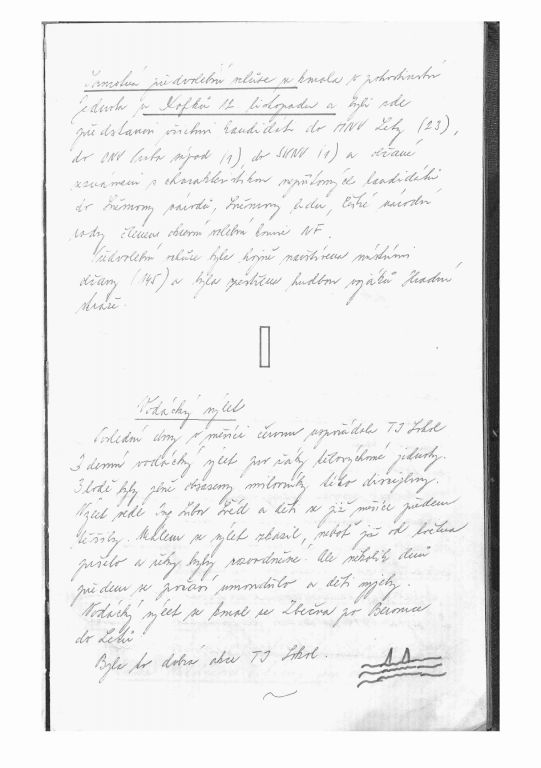 Samotná předvolební schůze se konala v pohostinství
Jednota u Kafků 12 listopadu a byli zde
představeni všichni kandidáti do MNV Lety (23),
do ONV (1), do SKNV (1) a občané
seznámeni s charakteristikou kandidátů
do Sněmovny národů, Sněmovny lidu, České národní
rady členem obvodní volební komise NF.
Předvolební schůze byla hojně navštívena místními
občany (145) a byla zpestřena hudbou vojáků Hradní
stráže.
Vodácký výlet
Poslední dny v měsíci červnu uspořádala TJ Sokol
3 denní vodácký výlet pro žáky tělovýchovné jednoty.
3 lodě byly plně obsazeny milovníky této disciplíny.
Výlet vedl ing Libor Šédl a děti se již měsíc předem
těšily. Málem se výlet zkazil, neboť již od května
pršelo a řeky byly rozvodněné. Ale několik dnů
předem se počasí umoudřilo a děti vyjely.
Vodácký výlet se konal ze Zbečna po Berounce
do Letů
Byla to dobrá akce TJ Sokol.